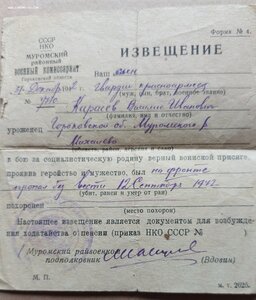 Форма № 4.
СССР
НКО
МУРОМСКИЙ
РАЙОННЫЙ
ВОЕННЫЙ КОМИССАРИАТ
Горьковской области
ИЗВЕЩЕНИЕ
Ваш муж
гвардии красноармеец
(муж, сын, брат, военное звание)
Караев Шапович
(фамилия, имя и отчество)
уроженец Горьковской обл. Муромского р.
(область, район, деревня и село)
в бою за социалистическую родину верный воинской присяге,
проявив геройство и мужество, был на фронте
пропал без вести 12 Сентября 1942
(убит, ранен и умер от ран)
похоронен
(место похорон)
Настоящее извещение является документом для возбужде-
ния ходатайства о пенсии (приказ НКО СССР № )
Муромский райвоенком
подполковник
(Вдовин)
М. П.
м. т. 2025.